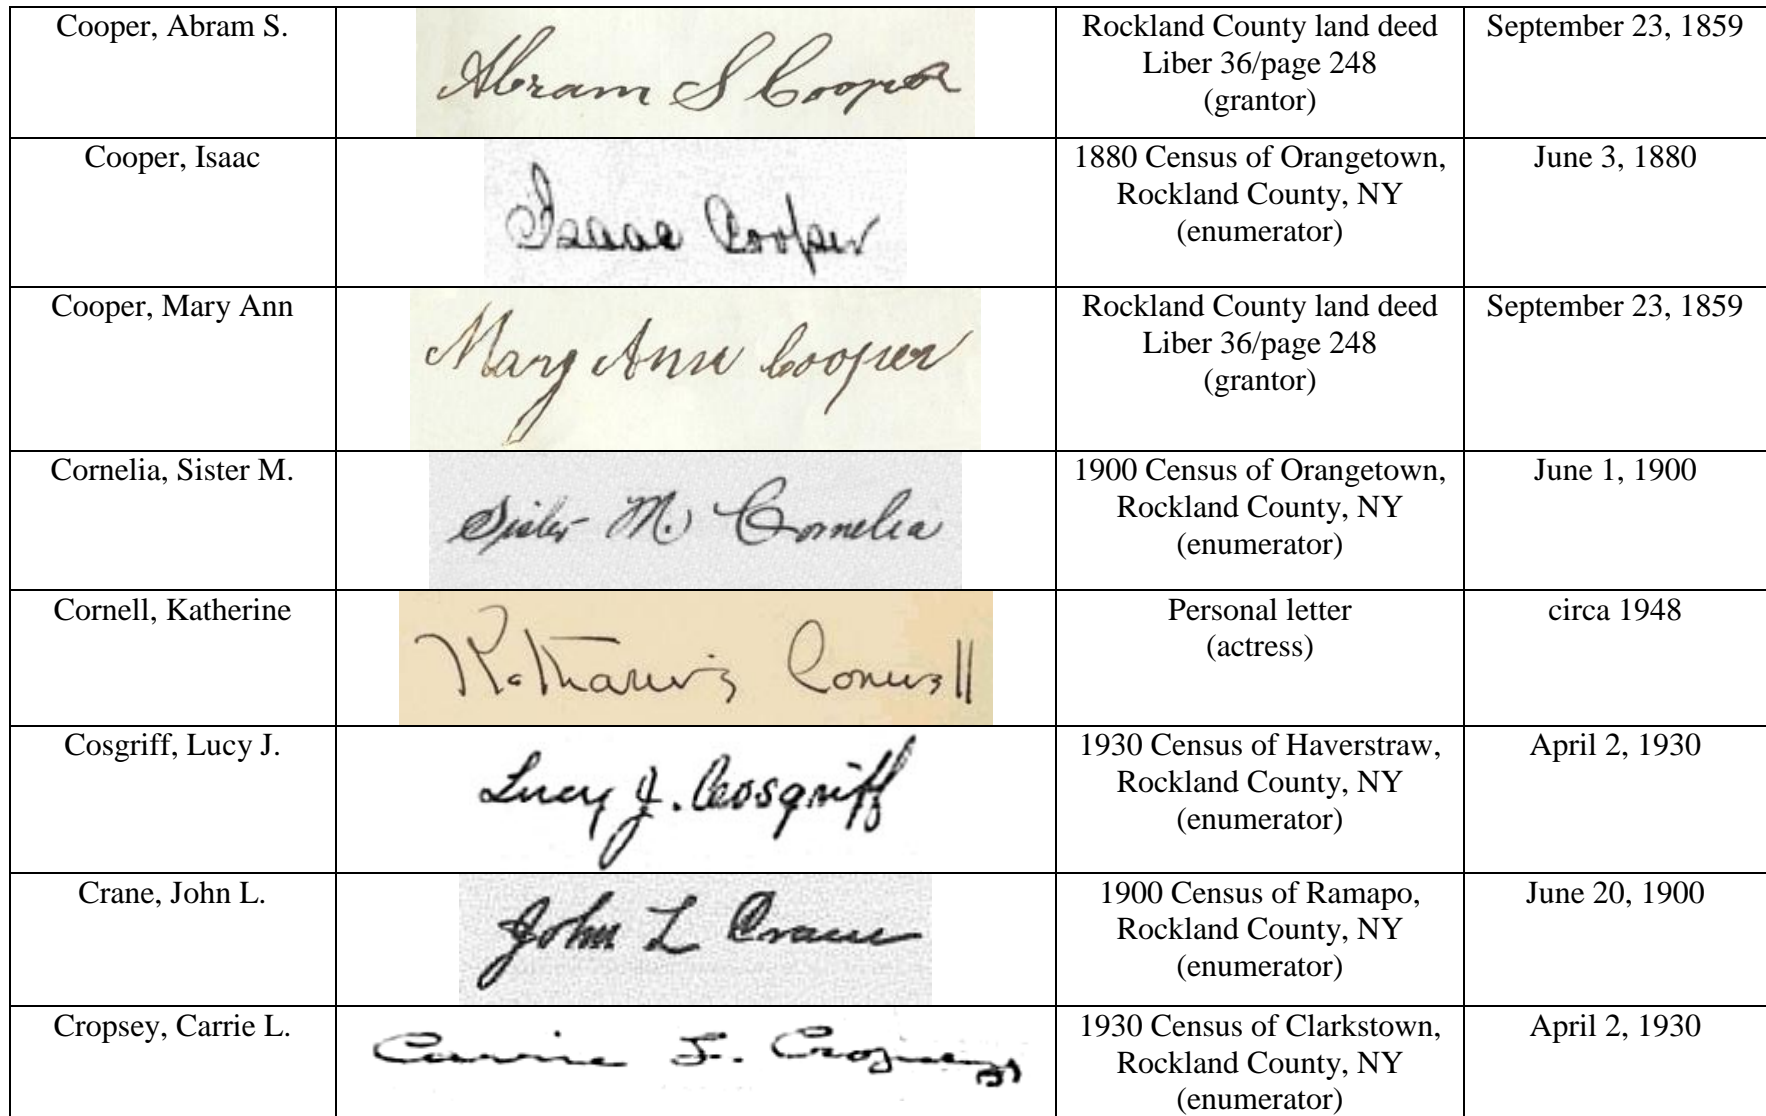 Cooper, Abram S.
Abram S Cooper
Rockland County land deed
Liber 36/page 248
(grantor)
September 23, 1859
Cooper, Isaac
Isaac Cooper
1880 Census of Orangetown,
Rockland County, NY
(enumerator)
June 3, 1880
Cooper, Mary Ann
Mary Ann Cooper
Rockland County land deed
Liber 36/page 248
(grantor)
September 23, 1859
Cornelia, Sister M.
Sister M. Cornelia
1900 Census of Orangetown,
Rockland County, NY
(enumerator)
June 1, 1900
Cornell, Katherine
Katharine Cornell
Personal letter
(actress)
circa 1948
Cosgriff, Lucy J.
Lucy J. Cosgriff
1930 Census of Haverstraw,
Rockland County, NY
(enumerator)
April 2, 1930
Crane, John L.
John L Crane
1900 Census of Ramapo,
Rockland County, NY
(enumerator)
June 20, 1900
Cropsey, Carrie L.
Carrie L. Cropsey
1930 Census of Clarkstown,
Rockland County, NY
(enumerator)
April 2, 1930